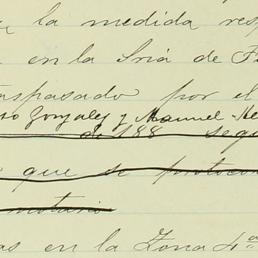 la medida resp
en la Sría de F
aspasado por el
so Gonzalez y Manuel He
de 188 segú
que se protocol
notario
as en la Zona 4ª